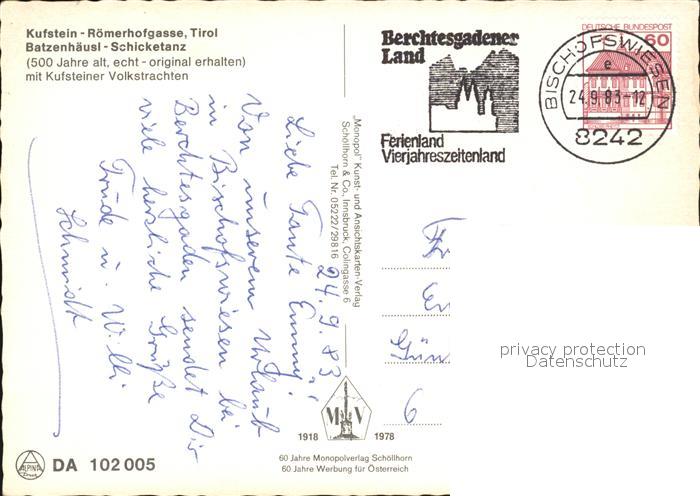 Kufstein - Römerhofgasse, Tirol
Batzenhäusl - Schicketanz
(500 Jahre alt, echt - original erhalten)
mit Kufsteiner Volkstrachten
Berchtesgadener
Land
Ferienland
Vierjahreszeitenland
DEUTSCHE BUNDESPOST
60
BISCHOFSWIESEN
e
24.9.83-12
8242
24.9.83
Liebe Tante Emmy!
Von unserem Urlaub
in Bischofswiesen bei
Berchtesgaden sendet Dir
viele herzliche Grüße
Trude u. Willi
Schmidt
"Monopol" Kunst- und Ansichtskarten-Verlag
Schöllhorn & Co, Innsbruck, Colingasse 6
Tel. Nr. 05222/29816
Gün
6
privacy protection
Datenschutz
M V
1918 1978
60 Jahre Monopolverlag Schöllhorn
60 Jahre Werbung für Österreich
ALPINA
Druck
DA 102 005